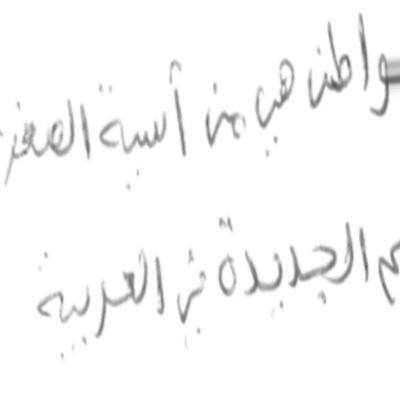 واطن هي من آسية الصغر
م الجديدة في العربية